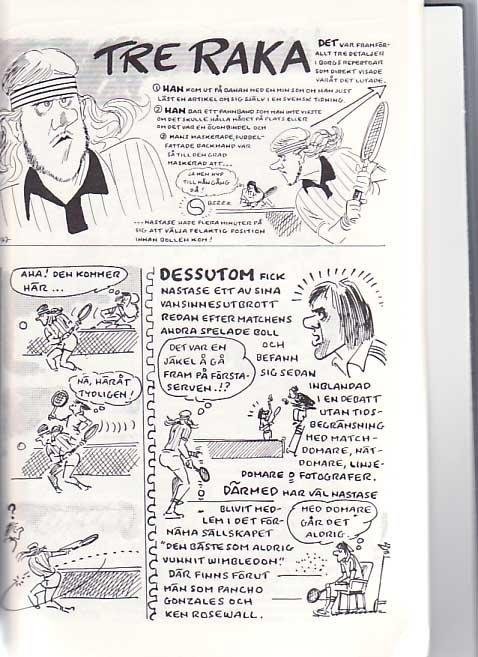 TRE RAKA
DET VAR FRAMFÖR-
ALLT TRE DETALJER
I BORGS REPERTOAR
SOM DIREKT VISADE
VARÅT DET LUTADE.
① HAN KOM UT PÅ BANAN MED EN MIN SOM OM HAN JUST
LÄST EN ARTIKEL OM SIG SJÄLV I EN SVENSK TIDNING.
② HAN BAR ETT PANNBAND SOM MAN INTE VISSTE
OM DET SKULLE HÅLLA HÅRET PÅ PLATS ELLER
OM DET VAR EN ÖGONBINDEL OCH
③ HANS MASKERADE, DUBBEL-
FATTADE BACKHAND VAR
SÅ TILL DEN GRAD
MASKERAD ATT...
TILL HÅN GÅNG
DÅ!
BZZZZ
...NASTASE HADE FLERA MINUTER PÅ
SIG ATT VÄLJA FELAKTIG POSITION
INNAN BOLLEN KOM!
AHA! DEN KOMMER
HÄR ...
NÄ, HÄRÅT
TYDLIGEN!
?
DESSUTOM FICK
NASTASE ETT AV SINA
VANSINNESUTBROTT
REDAN EFTER MATCHENS
ANDRA SPELADE BOLL
OCH
BEFANN
SIG SEDAN
DET VAR EN
JÄKEL Å GÅ
FRAM PÅ FÖRSTA-
SERVEN.!?
INBLANDAD
I EN DEBATT
UTAN TIDS-
BEGRÄNSNING
MED MATCH-
DOMARE, NÄT-
DOMARE, LINJE-
DOMARE O FOTOGRAFER.
DÄRMED HAR VÄL NASTASE
BLIVIT MED-
LEM I DET FÖR-
NÄMA SÄLLSKAPET
"DEN BÄSTE SOM ALDRIG
VUNNIT WIMBLEDON!"
DÄR FINNS FÖRUT
MÄN SOM PANCHO
GONZALES OCH
KEN ROSEWALL.
MED DOMARE
GÅR DET
ALDRIG...